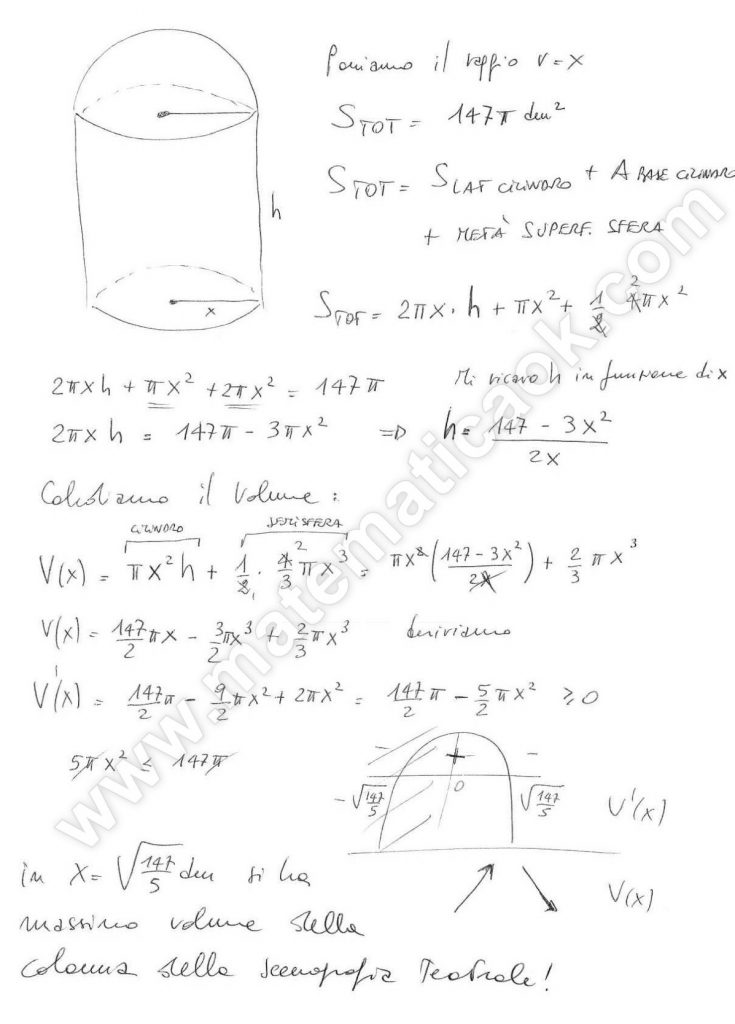 Poniamo il raggio r = x
S_TOT = 147π dm²
S_TOT = S LAT CILINDRO + A BASE CILINDRO
+ METÀ SUPERF. SFERA
h
x
S_TOT = 2πx · h + πx² + 1/2 4 2 πx²
2πxh + πx² + 2πx² = 147π
Mi ricavo h in funzione di x
2πxh = 147π - 3πx² => h = (147 - 3x²)/(2x)
Calcoliamo il Volume :
CILINDRO SEMISFERA
V(x) = πx²h + 1/2 · 4/3 2 πx³ = πx² ((147 - 3x²)/(2x)) + 2/3 πx³
V(x) = 147/2 πx - 3/2 πx³ + 2/3 πx³ deriviamo
V'(x) = 147/2 π - 9/2 πx² + 2πx² = 147/2 π - 5/2 πx² ≥ 0
5πx² ≤ 147π
- + -
-√(147/5) 0 √(147/5) V'(x)
V(x)
in x = √(147/5) dm si ha
massimo volume della
colonna della scenografia teatrale!
www.matematicaok.com